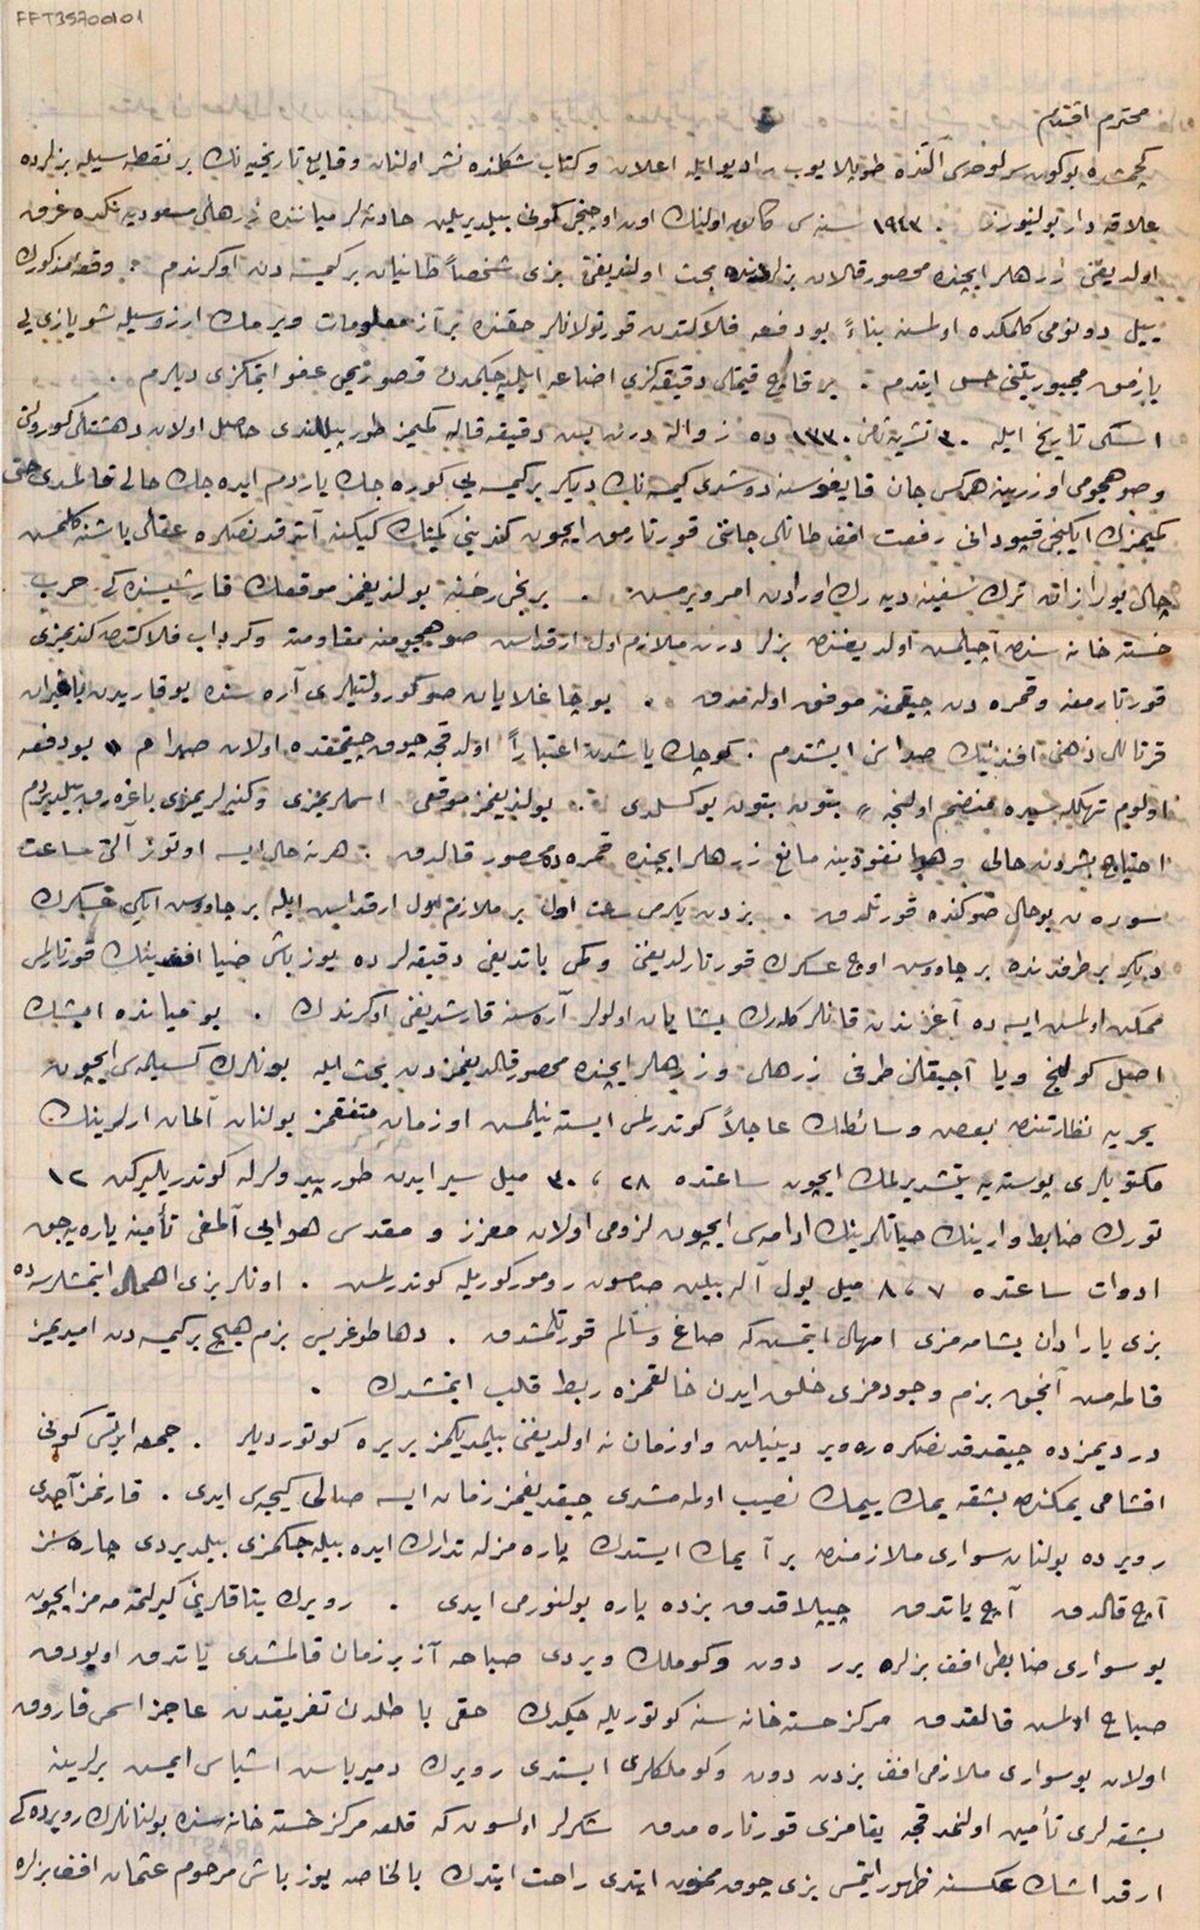 FFT35700101
محترم افندم
كچمشده بوكون سرلوحه‌سی آلتنده طوپلایوب رادیو ایله اعلان و كتاب شكلنده نشر اولنان وقایع تاریخیه‌نك بر نقطه‌سیله بزلرده
علاقه‌دار بولنیورز . ١٩٤٣ سنه‌سی كانون اولنك اون اوچنجی كونی بیلدیریلین حادثه‌لر میاننده زرهلی مسعودیه‌نك غرق
اولدیغنی زرهلر ایچنده محصور قالان بزلردنده بحث اولندیغنی بزی شخصاً طانیان بر كیمسه‌دن اوكرندم . وقعه مذكورك
ییل دونومی كلمكده اولمسنه بناءً بو دفعه فلاكتدن قورتولانلر حقنده بر آز معلومات ویرمك آرزوسیله شو یازی‌یی
یازمق مجبوریتنی حس ایتدم . بر قاچ قیمتلی دقیقه‌كزی اضاعه ایله‌یه‌جكمدن قصوریمی عفو ایتمكزی دیلرم .
اسكی تاریخ ایله ٣٠ تشرین ثانی ١٣٣٠ ده زواله درت بش دقیقه قاله كمیمز طورپیللندی حاصل اولان دهشتلی كورولتی
و صو هجومی اوزرینه هركس جان قایغوسنه دوشدی كیمسه‌نك دیكر بر كیمسه‌یی كوره‌جك یاردم ایده‌جك حالی قالمدی حتی
كمیمزك ایكنجی قپودانی رفعت افندی طاتلی جاننی قورتارمق ایچون كندینی كمینك كیكنه آتدقدنصكره عقلی باشنه كلمش
چالی بورازان ترك سفینه دیه‌رك اورادن امر ویرمش . بر نجی رخنه بولندیغمز موقعك قارشیسنده‌كی حرب
خسته‌خانه‌سنده آچیلمش اولدیغنده بزلر درت ملازم اول ارقداش صو هجومنه مقاومته و كرداب فلاكتدن كندیمزی
قورتارمغه و قمره‌دن چیقمغه موفق اوله‌مدق . بو چاغلایان صو كورولتیلری آره‌سنده یوقاریدن باغیران
قرتاللی ذهنی افندینك صداسنی ایشتدم . كوچك یاشدن اعتباراً اولدقجه چوق چیقمقده اولان صدام بو دفعه
اولوم تهلكه‌سیده منضم اولنجه بتون بتون یوكسلدی . بولندیغمز موقعی اسملریمزی و كنیه‌لریمزی باغره‌رق بیلدیردم
احتیاج بشردن خالی و هوا نفوذینه مانع زرهلر ایچنده قمره‌ده محصور قالدق . هر نه حال ایسه اوتوز آلتی ساعت
سوره‌ن بو حال صوكنده قورتلدق . بزدن یكرمی ساعت اول بر ملازم اول ارقداش ایله بر چاووش ایكی عسكرك
دیكر بر طرفدنده بر چاووش اوچ عسكرك قورتارلدیغی و كمی باتدیغی دقیقه‌لرده یوزباشی ضیا افندینك قورتارلمسی
ممكن اولمش ایسه‌ده آغزندن قانلر كله‌رك یشایان اولولر آره‌سنه قارشدیغنی اوكرندك . بو میانده ایشك
اصل كولنج ویا آجیقلی طرفی زرهلی و زرهلر ایچنده محصور قالدیغمزدن بحث ایله بونلرك كسیلمه‌سی ایچون
بحریه نظارتندن بعض وسائطك عاجلاً كوندرلمسی ایسته‌نیلمش او زمان متفقمز بولنان آلمان ارلرینك
مكتوبلری پوسته‌یه یتشدیرلمك ایچون ساعتده ٢٨ ، ٣٠ میل سیر ایدن طورپیدولرله كوندریلیركن ١٢
تورك ضابط وارینك حیاتلرینك ادامه‌سی ایچون لزومی اولان معزز و مقدس هوایی آلمغی تأمینه یارایه‌جق
ادوات ساعتده ٧ ، ٨ میل یول آله‌بیلن صامسون روموركوریله كوندرلمش . اونلر بزی اهمال ایتمشلرسه‌ده
بزی یارادان یشامه‌مزی امهال ایتمش‌كه صاغ و سالم قورتلمشدق . دها طوغریسی بزم هیچ بر كیمسه‌دن امیدیمز
قالمه‌مش آنجق بزم وجودمزی خلق ایدن خالقمزه ربط قلب ایتمشدك .
دردیمزده چیقدقدنصكره رویر دینیلن و او زمان نه اولدیغنی بیلمدیكمز بر یره كوتوردیلر . جمعه ایرتسی كونی
اقشامی یمكندن بشقه یمك ییمك نصیب اولمه‌مشدی چیقدیغمز زمان ایسه صالی كیجه‌سی ایدی . قارنمز آجدی
رویرده بولنان سواری ملازمندن بر آز یمك ایستدك پاره‌مزله تدارك ایده‌بیله‌جكمزی بیلدیردی چاره‌سز
آچ قالدق آچ یاتدق چیپلاقدق بزده پاره بولنورمی ایدی . رویرك یتاقلرینی كیرلتمه‌مه‌مز ایچون
بو سواری ضابطی افندی بزلره بررر دون و كوملك ویردی صباحه آز بر زمان قالمشدی یاتدق اویودق
صباح اولمش قالقدق مركز خسته‌خانه‌سنه كوتوریله‌جكدك حقی باطلدن تفریقدن عاجز اسمی فاروق
اولان بو سواری ملازمی افندی بزدن دون و كوملكلری ایستدی رویرك دمیرباش اشیاسی ایمش یرلرینه
بشقه‌لری تأمین اولنمدقجه یقامزی قورتاره‌مدق شكرلر اولسون‌كه قلعه مركز خسته‌خانه‌سنده بولنانلرك رویرده‌كی
ارقداشك عكسنه ظهور ایتمسی بزی چوق ممنون ایتدی راحت ایتدك بالخاصه یوزباشی مرحوم عثمان افندی بزلره